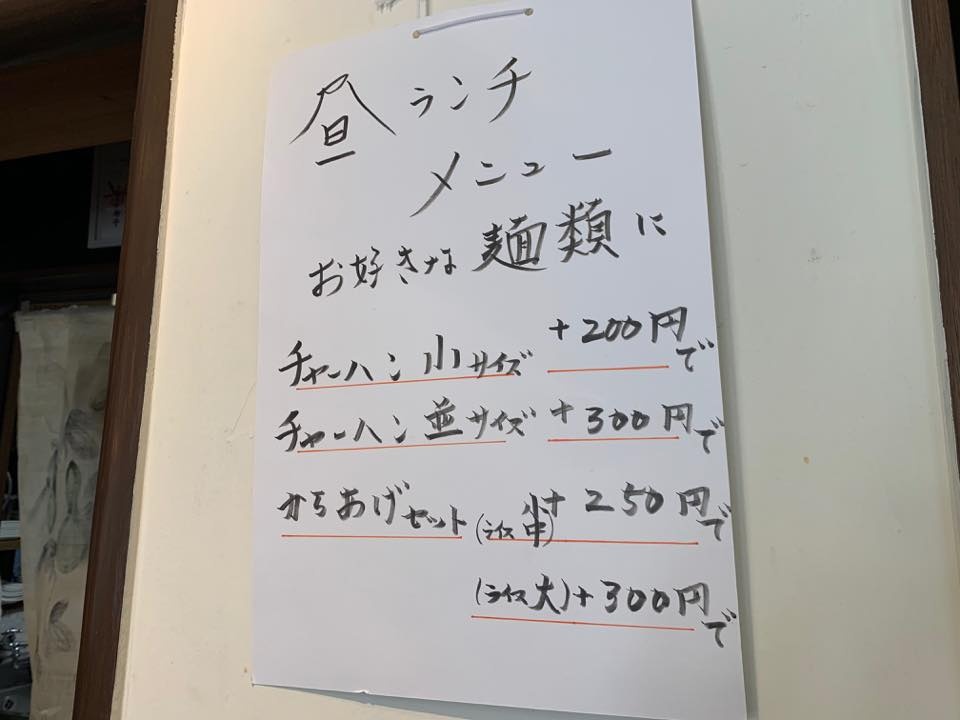 昼ランチ
メニュー
お好きな麺類に
チャーハン小サイズ +200円で
チャーハン並サイズ +300円で
からあげセット(ライス小中)+250円で
(ライス大)+300円で